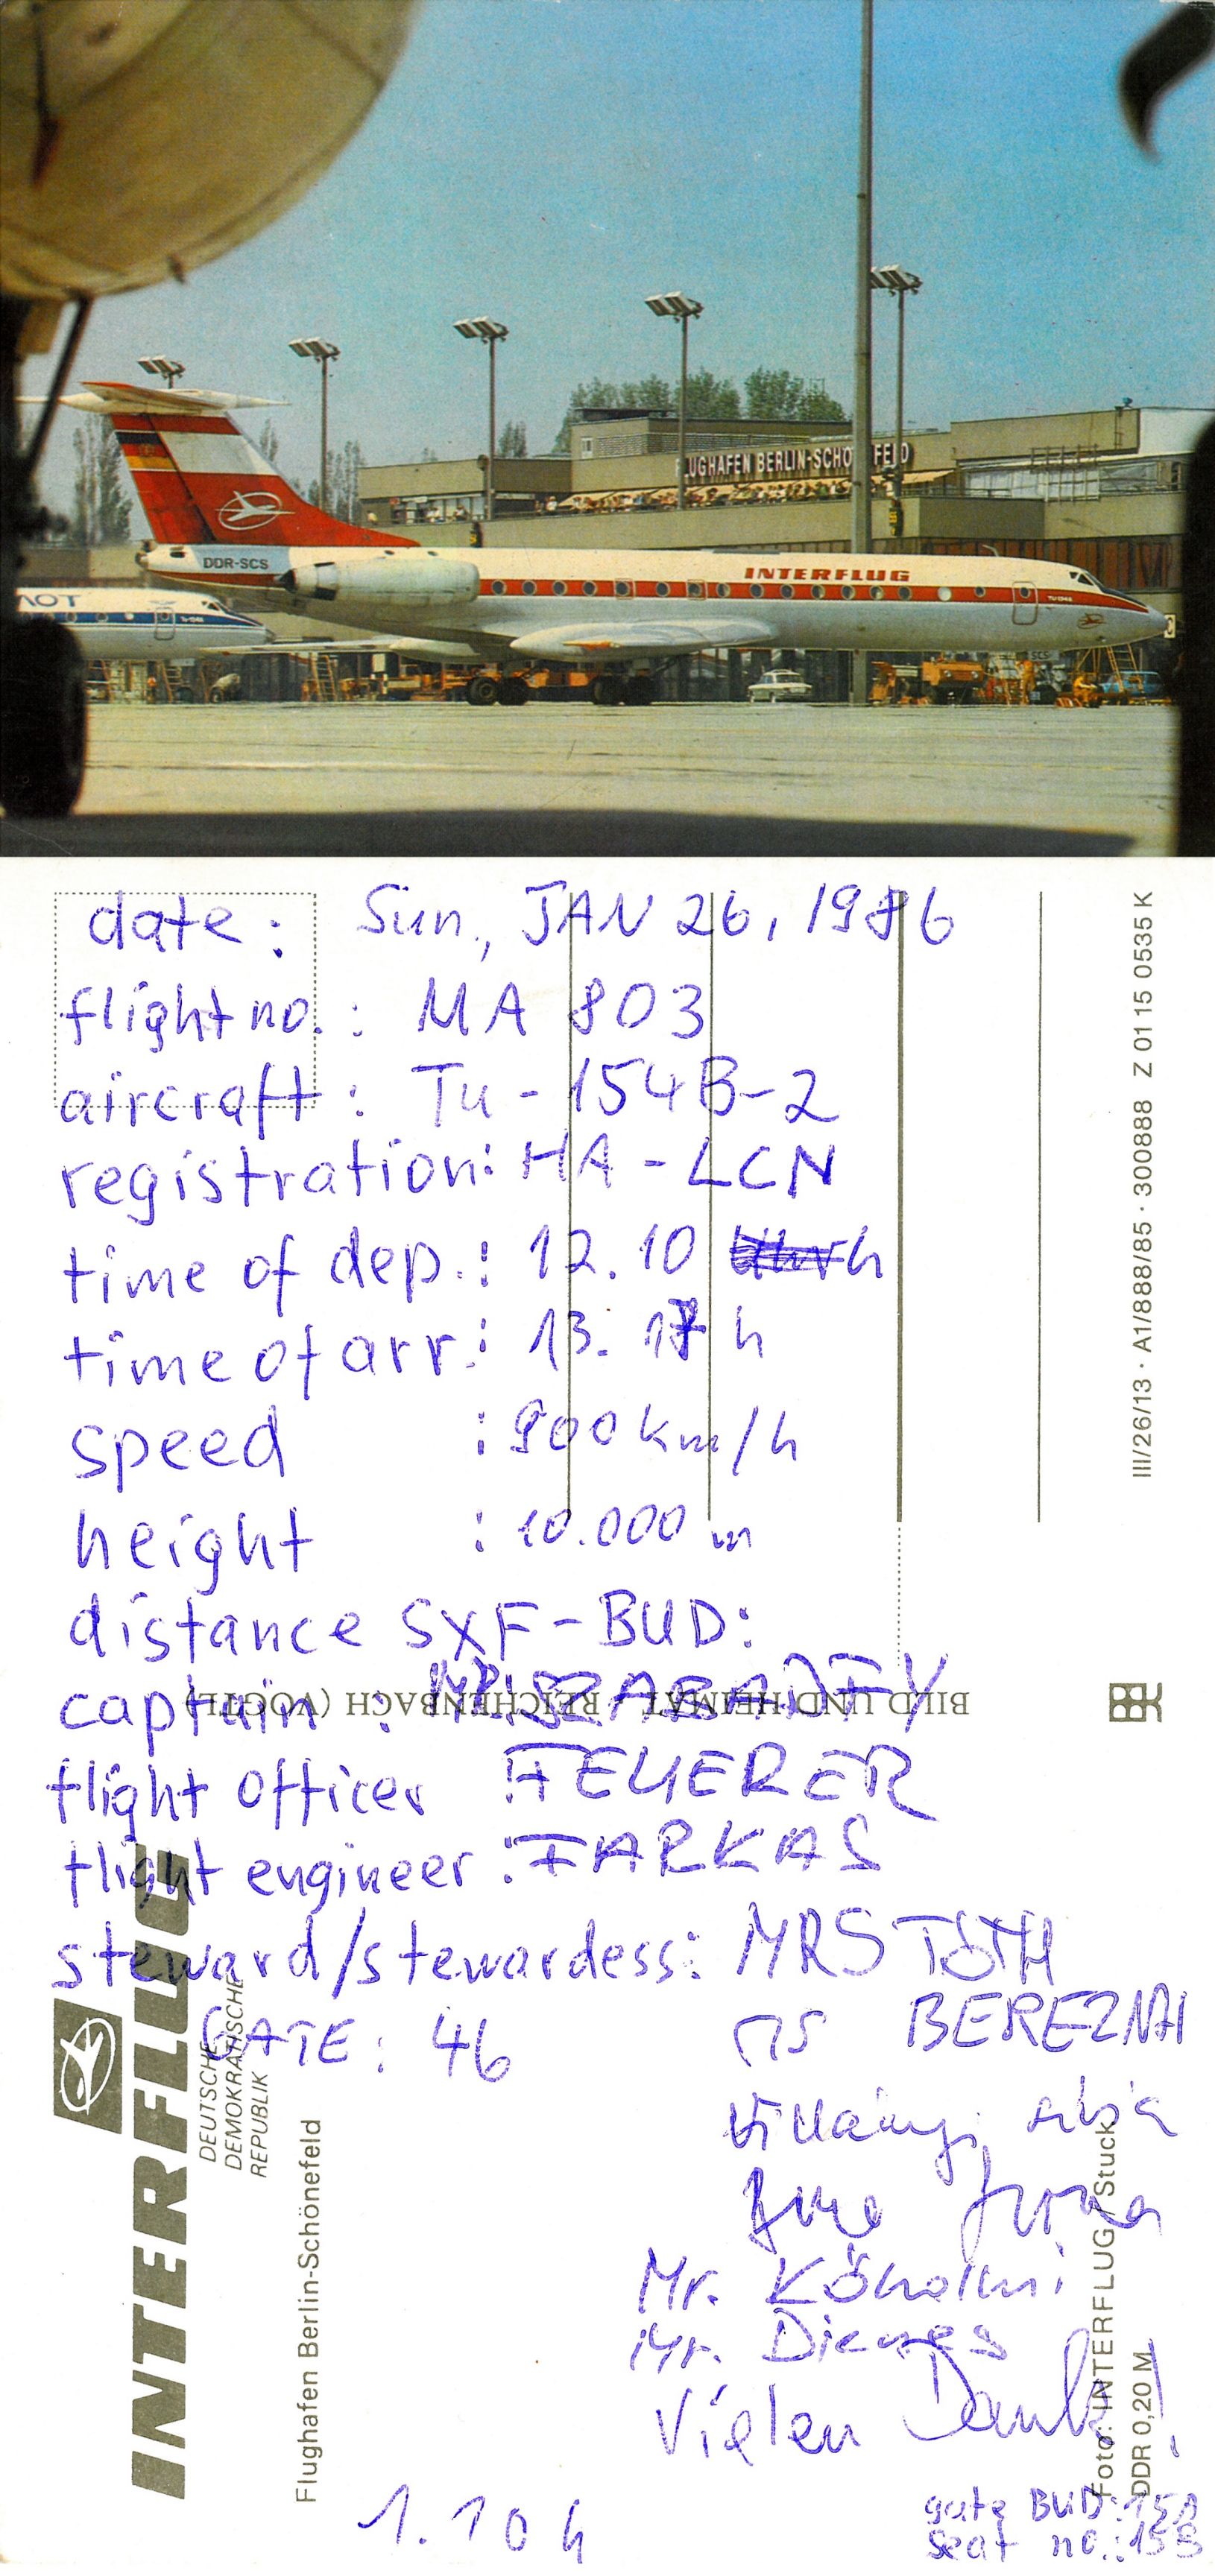 FLUGHAFEN BERLIN-SCHÖNEFELD
DDR-SCS
INTERFLUG
date: Sun, JAN 26, 1986
flight no.: MA 803
aircraft: Tu-154B-2
registration: HA-LCN
time of dep.: 12.10 h
time of arr.: 13.17 h
speed : 900 km/h
height : 10.000 m
distance SXF-BUD:
captain : MR. SZABADFY
flight officer FEUERER
flight engineer: FARKAS
steward/stewardess: MRS TÓTH
GATE: 46
MS BEREZNAI
Villányi
Mr.
Mr. Dienes
Vielen Dank!
1.10 h
gate BUD: 15A
Seat no.: 15B
III/26/13 · A1/888/85 · 300888 Z 01 15 0535 K
BILD UND HEIMAT REICHENBACH (VOGTL)
INTERFLUG
DEUTSCHE
DEMOKRATISCHE
REPUBLIK
Flughafen Berlin-Schönefeld
Foto: INTERFLUG / Stuck
DDR 0,20 M